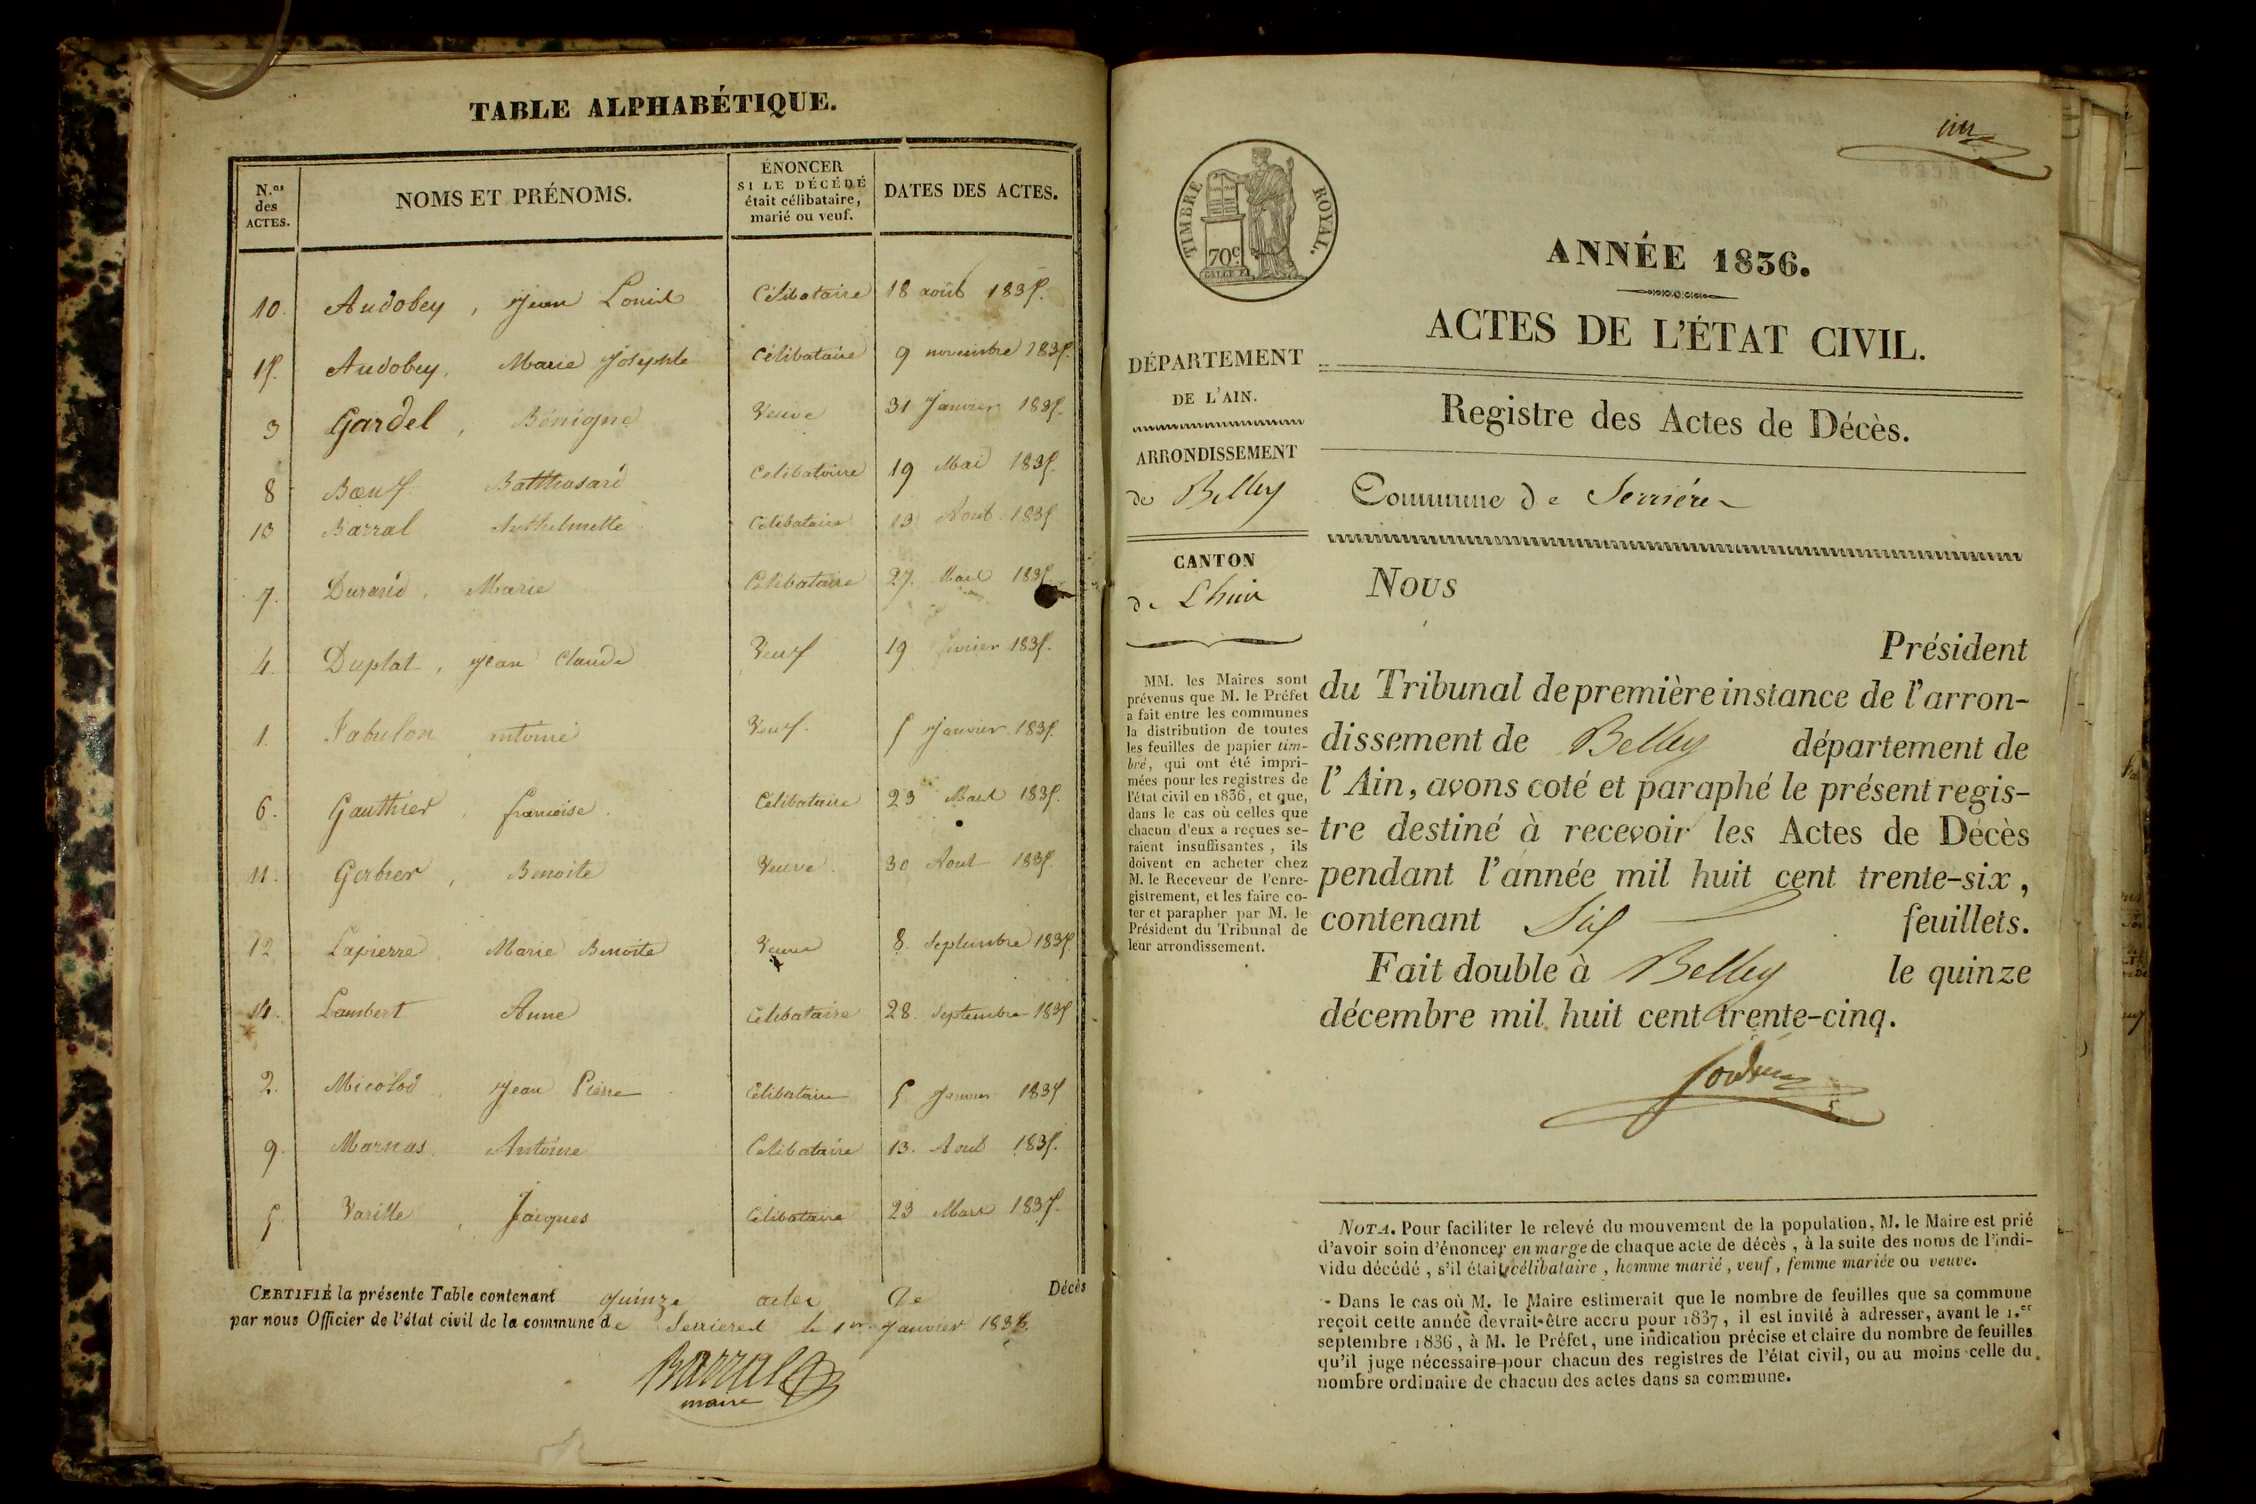 TABLE ALPHABÉTIQUE.
N.os des ACTES.
NOMS ET PRÉNOMS.
ÉNONCER
SI LE DÉCÉDÉ
était célibataire,
marié ou veuf.
DATES DES ACTES.
10. Audobey, Jean Louis Célibataire 18 août 1835.
15. Audobey, Marie Josephte Célibataire 9 novembre 1835.
3 Gardel, Bénigne Veuve 31 Janvier 1835.
8 Bœuf Balthasard Celibataire 19 Mai 1835.
13 Barral Anthelmette Celibataire 13 Aout 1835
7. Durand, Marie Célibataire 27. Mars 1835.
4. Duplat, Jean Claude Veuf 19 février 1835.
1. Fabulon antoine Veuf. 5 Janvier 1835.
6. Gauthier, françoise. Célibataire 23 Mars 1835.
11. Gerbier, Benoite Veuve. 30 Aout 1835.
12 Lapierre Marie Benoite Veuve 8. Septembre 1835.
14. Lambert Anne Célibataire 28. Septembre 1835
2. Micolod Jean Pierre Célibataire 5 Janvier 1835
9. Marnas Antoine Celibataire 13. Aout 1835.
5. Varille, Jacques Célibataire 23 Mars 1835.
CERTIFIÉ la présente Table contenant quinze actes de Décès
par nous Officier de l'état civil de la commune de Serrieres le 1er Janvier 1836.
Barral
maire
un
TIMBRE ROYAL.
70c
ANNÉE 1836.
ACTES DE L'ÉTAT CIVIL.
DÉPARTEMENT
DE L'AIN.
ARRONDISSEMENT
de Belley
CANTON
de Lhuis
MM. les Maires sont
prévenus que M. le Préfet
a fait entre les communes
la distribution de toutes
les feuilles de papier tim-
bré, qui ont été impri-
mées pour les registres de
l'état civil en 1836, et que,
dans le cas où celles que
chacun d'eux a reçues se-
raient insuffisantes, ils
doivent en acheter chez
M. le Receveur de l'enre-
gistrement, et les faire co-
ter et parapher par M. le
Président du Tribunal de
leur arrondissement.
Registre des Actes de Décès.
Commune de Serriéres
Nous
Président
du Tribunal de première instance de l'arron-
dissement de Belley département de
l'Ain, avons coté et paraphé le présent regis-
tre destiné à recevoir les Actes de Décès
pendant l'année mil huit cent trente-six,
contenant Six feuillets.
Fait double à Belley le quinze
décembre mil huit cent trente-cinq.
NOTA. Pour faciliter le relevé du mouvement de la population, M. le Maire est prié
d'avoir soin d'énoncer en marge de chaque acte de décès, à la suite des noms de l'indi-
vidu décédé, s'il était célibataire, homme marié, veuf, femme mariée ou veuve.
- Dans le cas où M. le Maire estimerait que le nombre de feuilles que sa commune
reçoit cette année devrait être accru pour 1837, il est invité à adresser, avant le 1.er
septembre 1836, à M. le Préfet, une indication précise et claire du nombre de feuilles
qu'il juge nécessaire pour chacun des registres de l'état civil, ou au moins celle du
nombre ordinaire de chacun des actes dans sa commune.